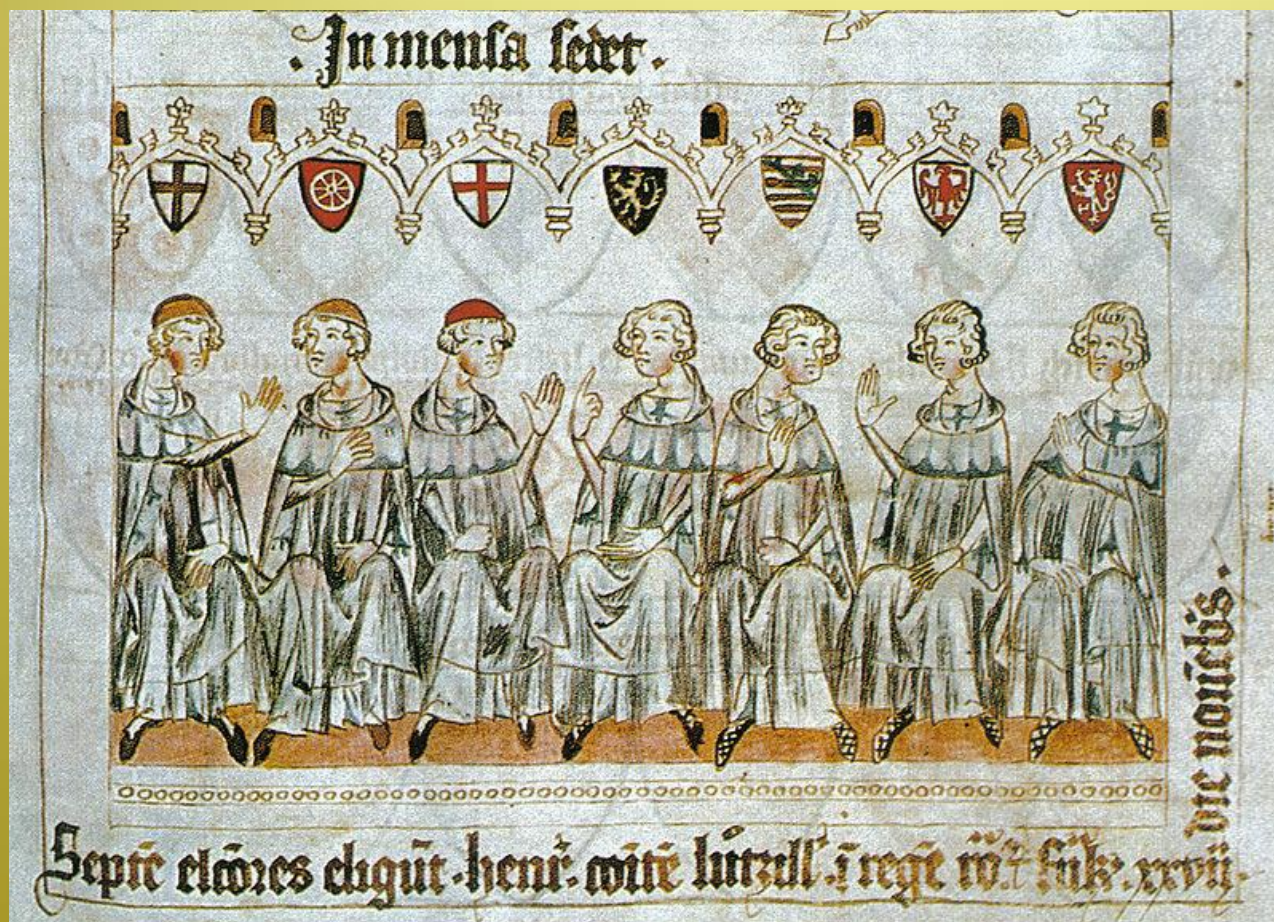 . In mensa sedet .
Septē elcōres eligūt · henr̄ · cōitē lutzill' · ī regē rō · · xxvii ·
die nouēbis .